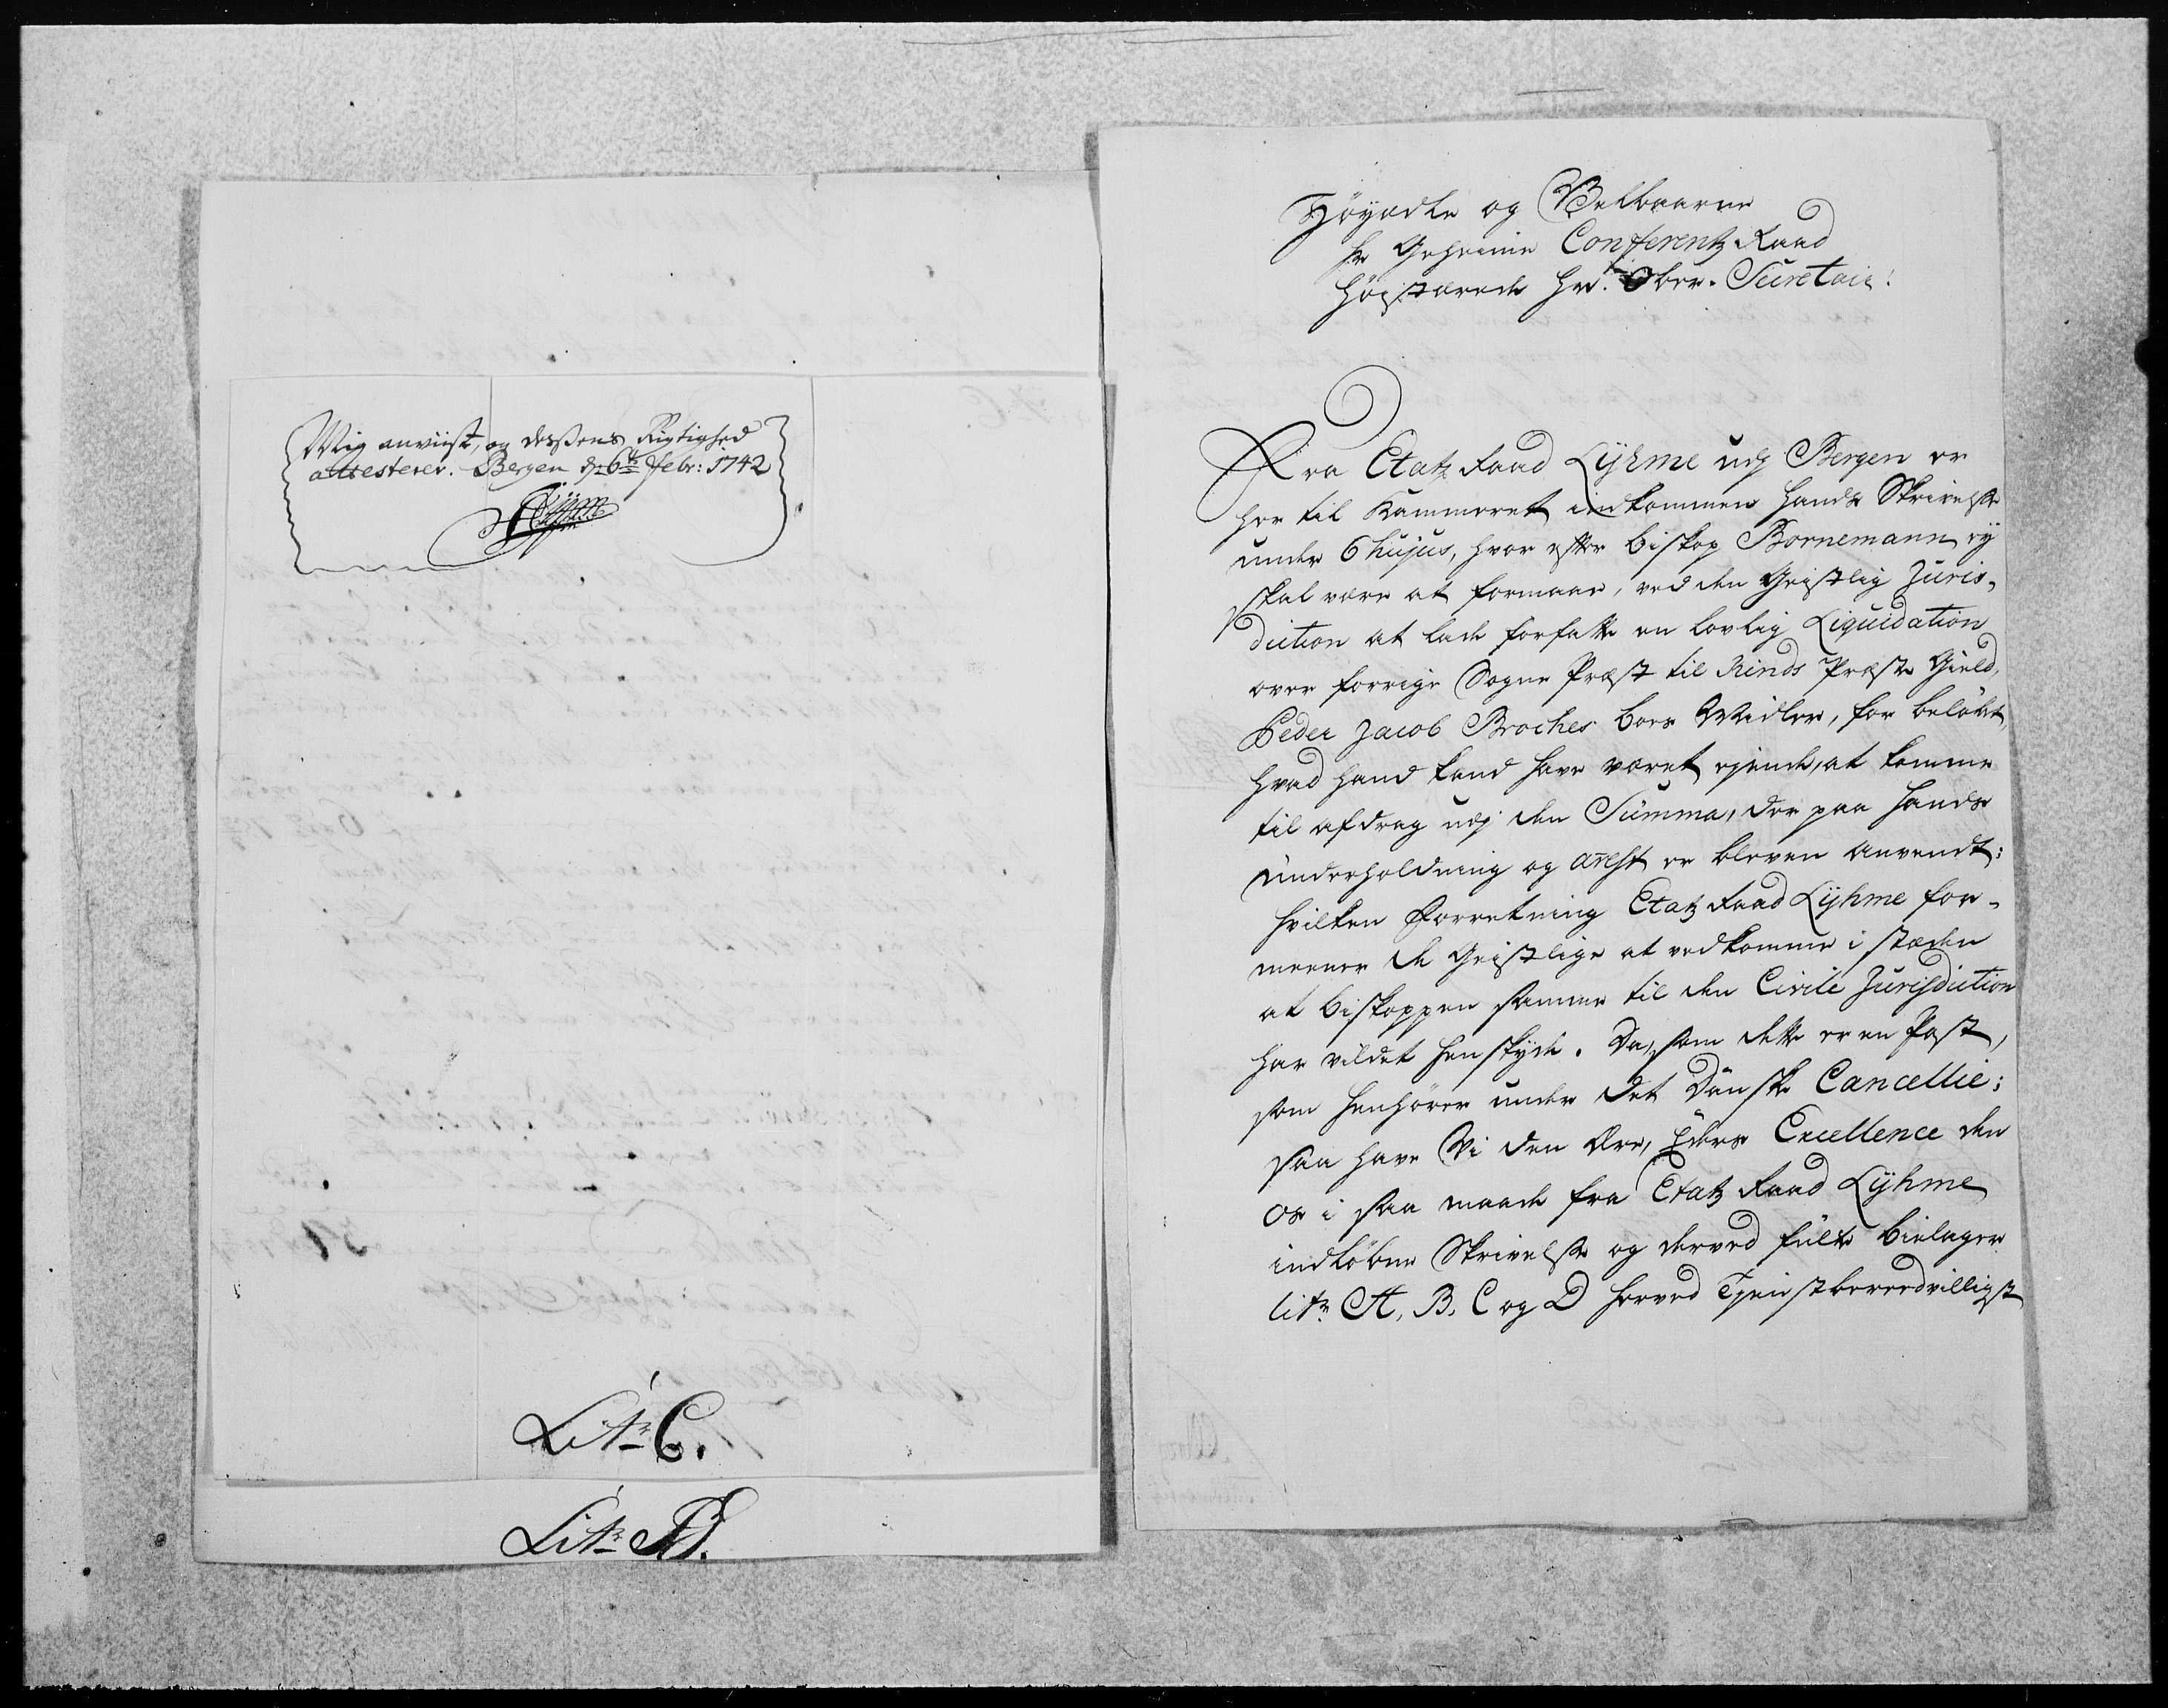 Mig anviist, og dessens Rigtighed
attesterer. Bergen d. 6te Febr: 1742
Litr C.
Litr D.
Höyædle og Velbaarne
Hr Geheime Conferentz Raad
Höystærede Hr. Ober-Secretair!
Fra Etatz Raad Lyhme udj Bergen er
her til Kammeret indkommen hands Skrivelse
under 6 hujus, hvor efter biskop Bornemann ey
skal være at formaae, ved den Geistlig Juris-
diction at lade forfatte en lovlig Liquidation
over forrige Sogne Præst til Kinds Præste Gield,
Peder Jacob Broches boes Midler, for beløbet,
hvad hand kand have været ejende, at komme
til afdrag udj den Summa, der paa hands
underholdning og arest er bleven anvendt:
hvilken Forretning Etatz Raad Lyhme for-
meener de Geistlige at vedkomme i stæden
at biskoppen samme til den Civile Jurisdiction
har vildet henskyde. Da, som dette er en Post,
som henhører under det Danske Cancellie;
saa have Vi den Ære, Eders Excellence den
os i saa maade fra Etatz Raad Lyhme
indløbne Skrivelse og derved fulte bielager
litr A, B, C og D herved Tjenistbereedvilligst